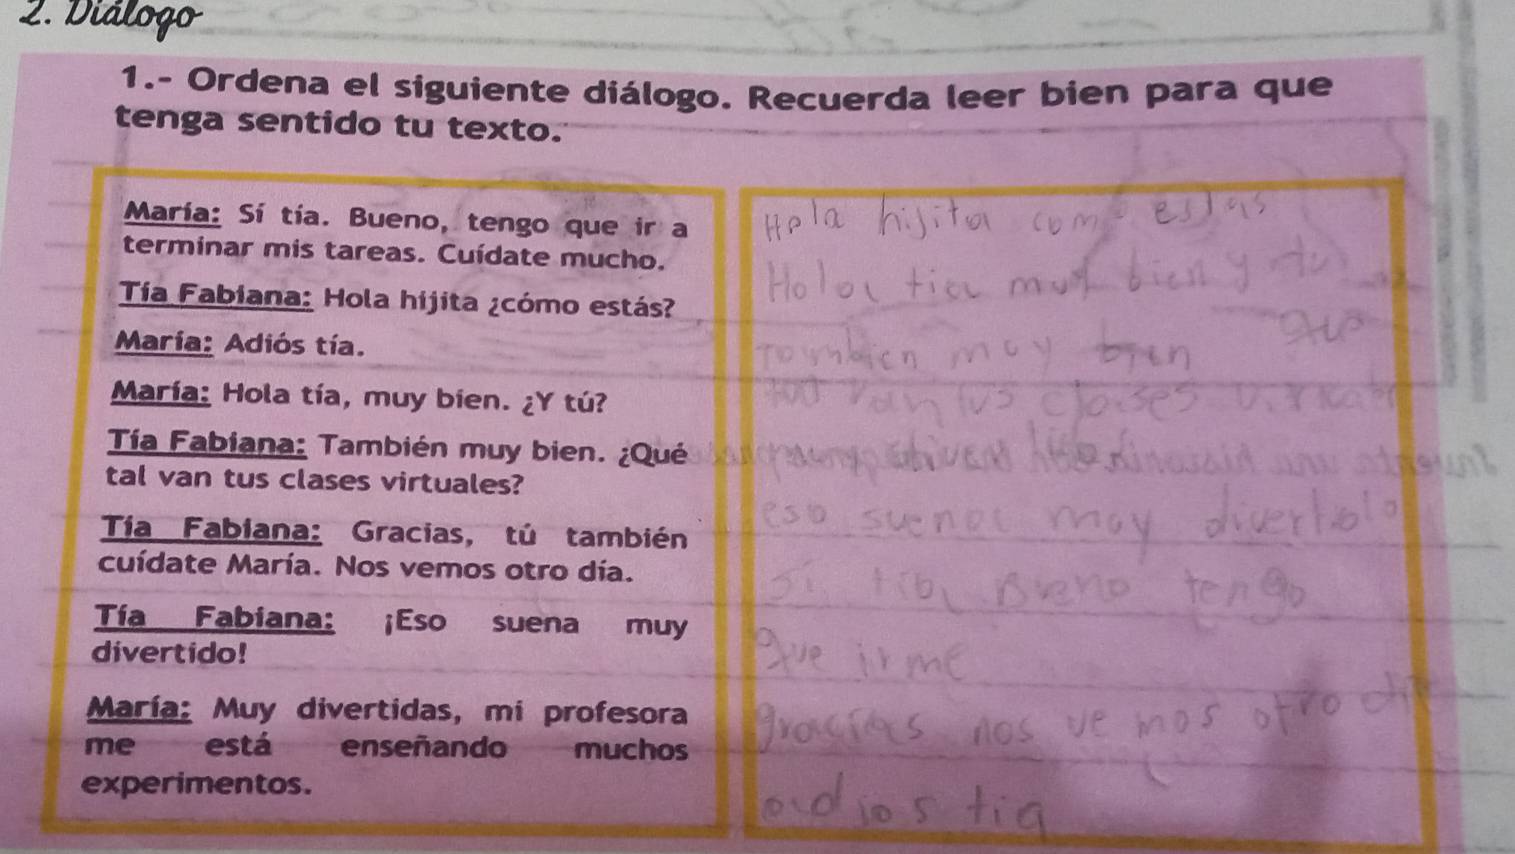 2. Diálogo
1.- Ordena el siguiente diálogo. Recuerda leer bien para que
tenga sentido tu texto.
María: Sí tía. Bueno, tengo que ir a
terminar mis tareas. Cuídate mucho.
Tía Fabiana: Hola hijita ¿cómo estás?
María: Adiós tía.
María: Hola tía, muy bien. ¿Y tú?
Tía Fabiana: También muy bien. ¿Qué
tal van tus clases virtuales?
Tía Fabiana: Gracias, tú también
cuídate María. Nos vemos otro día.
Tía Fabiana: ¡Eso suena muy
divertido!
María: Muy divertidas, mi profesora
me está enseñando muchos
experimentos.
Hola hijita como estas
Hola tia muy bien y tu
tombien muy bien que
van tus clases
eso suena muy divertido
si tia Bueno tengo
que irme
gracias nos ve mos otro dia
adios tia